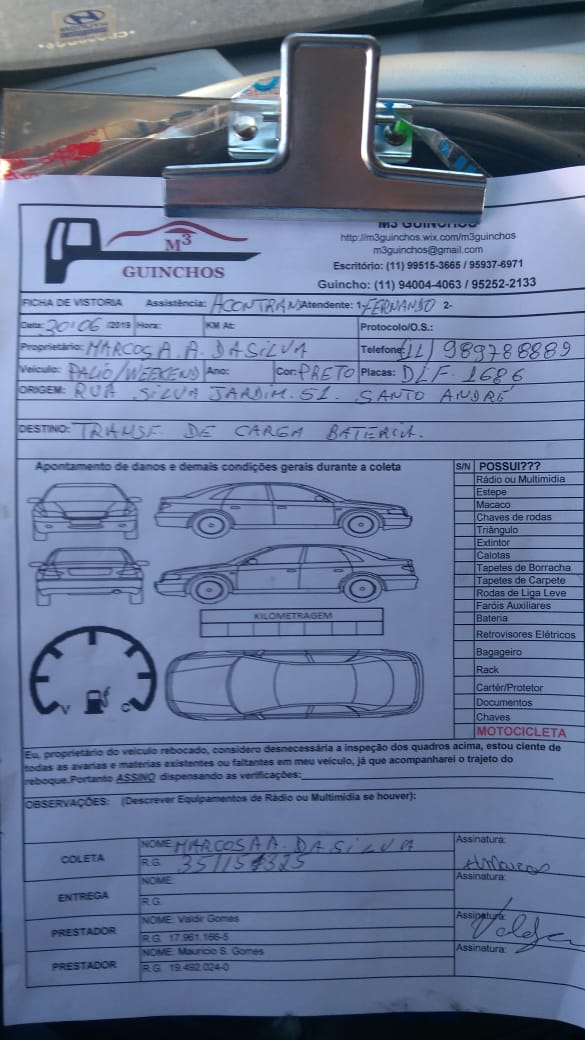 M3 GUINCHOS
http://m3guinchos.wix.com/m3guinchos
m3guinchos@gmail.com
Escritório: (11) 99515-3665 / 95937-6971
Guincho: (11) 94004-4063 / 95252-2133
M3
GUINCHOS
FICHA DE VISTORIA Assistência: ACONTRAN Atendente: 1- FERNANDO 2-
Data: 30.06 /2019 Hora: KM At: Protocolo/O.S.:
Proprietário: MARCOS A. A. DA SILVA Telefone: (11) 989788889
Veículo: PALIO/WEEKEND Ano: Cor: PRETO Placas: DLF. 1686
ORIGEM: RUA SILVA JARDIM. 51. SANTO ANDRÉ
DESTINO: TRANSF. DE CARGA BATERIA.
Apontamento de danos e demais condições gerais durante a coleta
S/N POSSUI???
Rádio ou Multimidia
Estepe
Macaco
Chaves de rodas
Triângulo
Extintor
Calotas
Tapetes de Borracha
Tapetes de Carpete
Rodas de Liga Leve
Faróis Auxiliares
Bateria
Retrovisores Elétricos
Bagageiro
Rack
Cartér/Protetor
Documentos
Chaves
MOTOCICLETA
KILOMETRAGEM
V C
Eu, proprietário do veículo rebocado, considero desnecessária a inspeção dos quadros acima, estou ciente de
todas as avarias e materias existentes ou faltantes em meu veículo, já que acompanharei o trajeto do
reboque.Portanto ASSINO dispensando as verificações:
OBSERVAÇÕES: (Descrever Equipamentos de Rádio ou Multimidia se houver):
COLETA NOME: MARCOS A A. DA SILVA Assinatura:
R.G.
ENTREGA NOME: Assinatura:
R.G.
PRESTADOR NOME: Valdir Gomes Assinatura:
R.G. 17.961.166-5
PRESTADOR NOME: Mauricio S. Gomes Assinatura:
R.G. 19.492.024-0